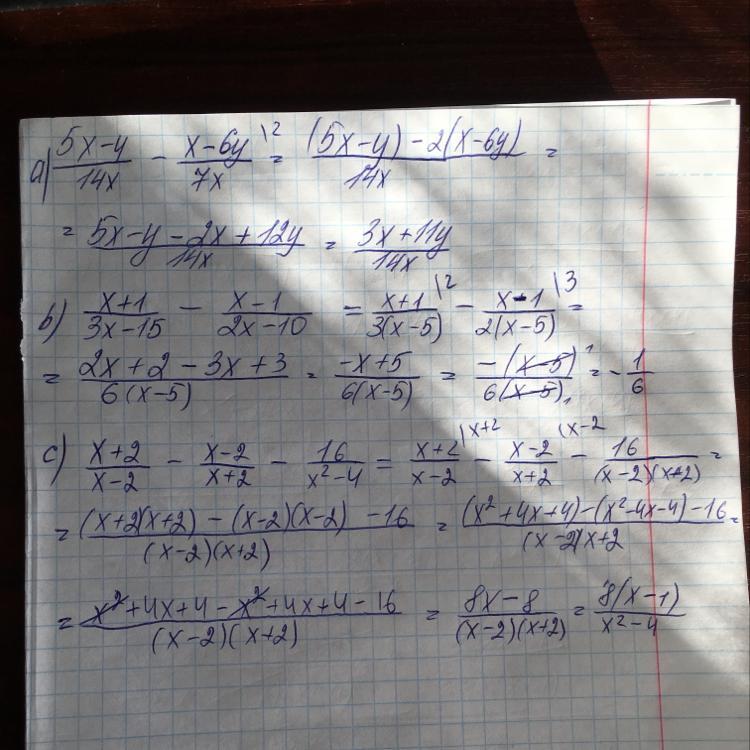 a) (5x-y)/(14x) - (x-6y)/(7x) \2 = ((5x-y)-2(x-6y))/(14x) =
= (5x-y-2x+12y)/(14x) = (3x+11y)/(14x)
b) (x+1)/(3x-15) - (x-1)/(2x-10) = (x+1)/(3(x-5)) \2 - (x-1)/(2(x-5)) \3 =
= (2x+2-3x+3)/(6(x-5)) = (-x+5)/(6(x-5)) = (-(x-5) 1)/(6(x-5) 1) = -1/6
c) (x+2)/(x-2) - (x-2)/(x+2) - 16/(x²-4) = (x+2)/(x-2) \x+2 - (x-2)/(x+2) \x-2 - 16/((x-2)(x+2)) =
= ((x+2)(x+2)-(x-2)(x-2)-16)/((x-2)(x+2)) = ((x²+4x+4)-(x²-4x-4)-16)/((x-2)(x+2) =
= (x²+4x+4-x²+4x+4-16)/((x-2)(x+2)) = (8x-8)/((x-2)(x+2)) = (8(x-1))/(x²-4)